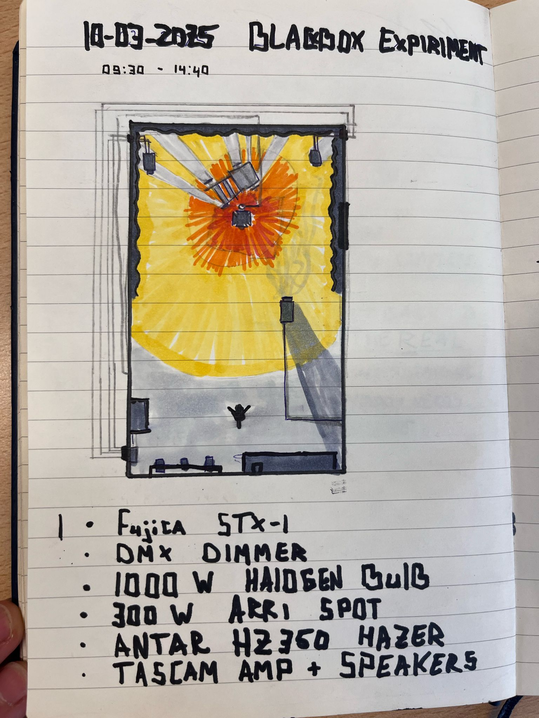 10-03-2025 BLACBOX EXPIRIMENT
09:30 - 14:40
1 • Fujica STX-1
• DMX DIMMER
• 1000 W HAlOGEN BulB
• 300 W ARRI SPOT
• ANTAR HZ350 HAZER
• TASCAM AMP + SPEAKERS